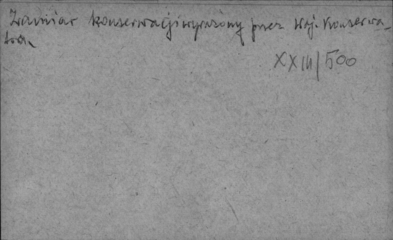 Zamiar konserwacji wyrażony przez Woj. Konserwa-
tora.
XXIII/500